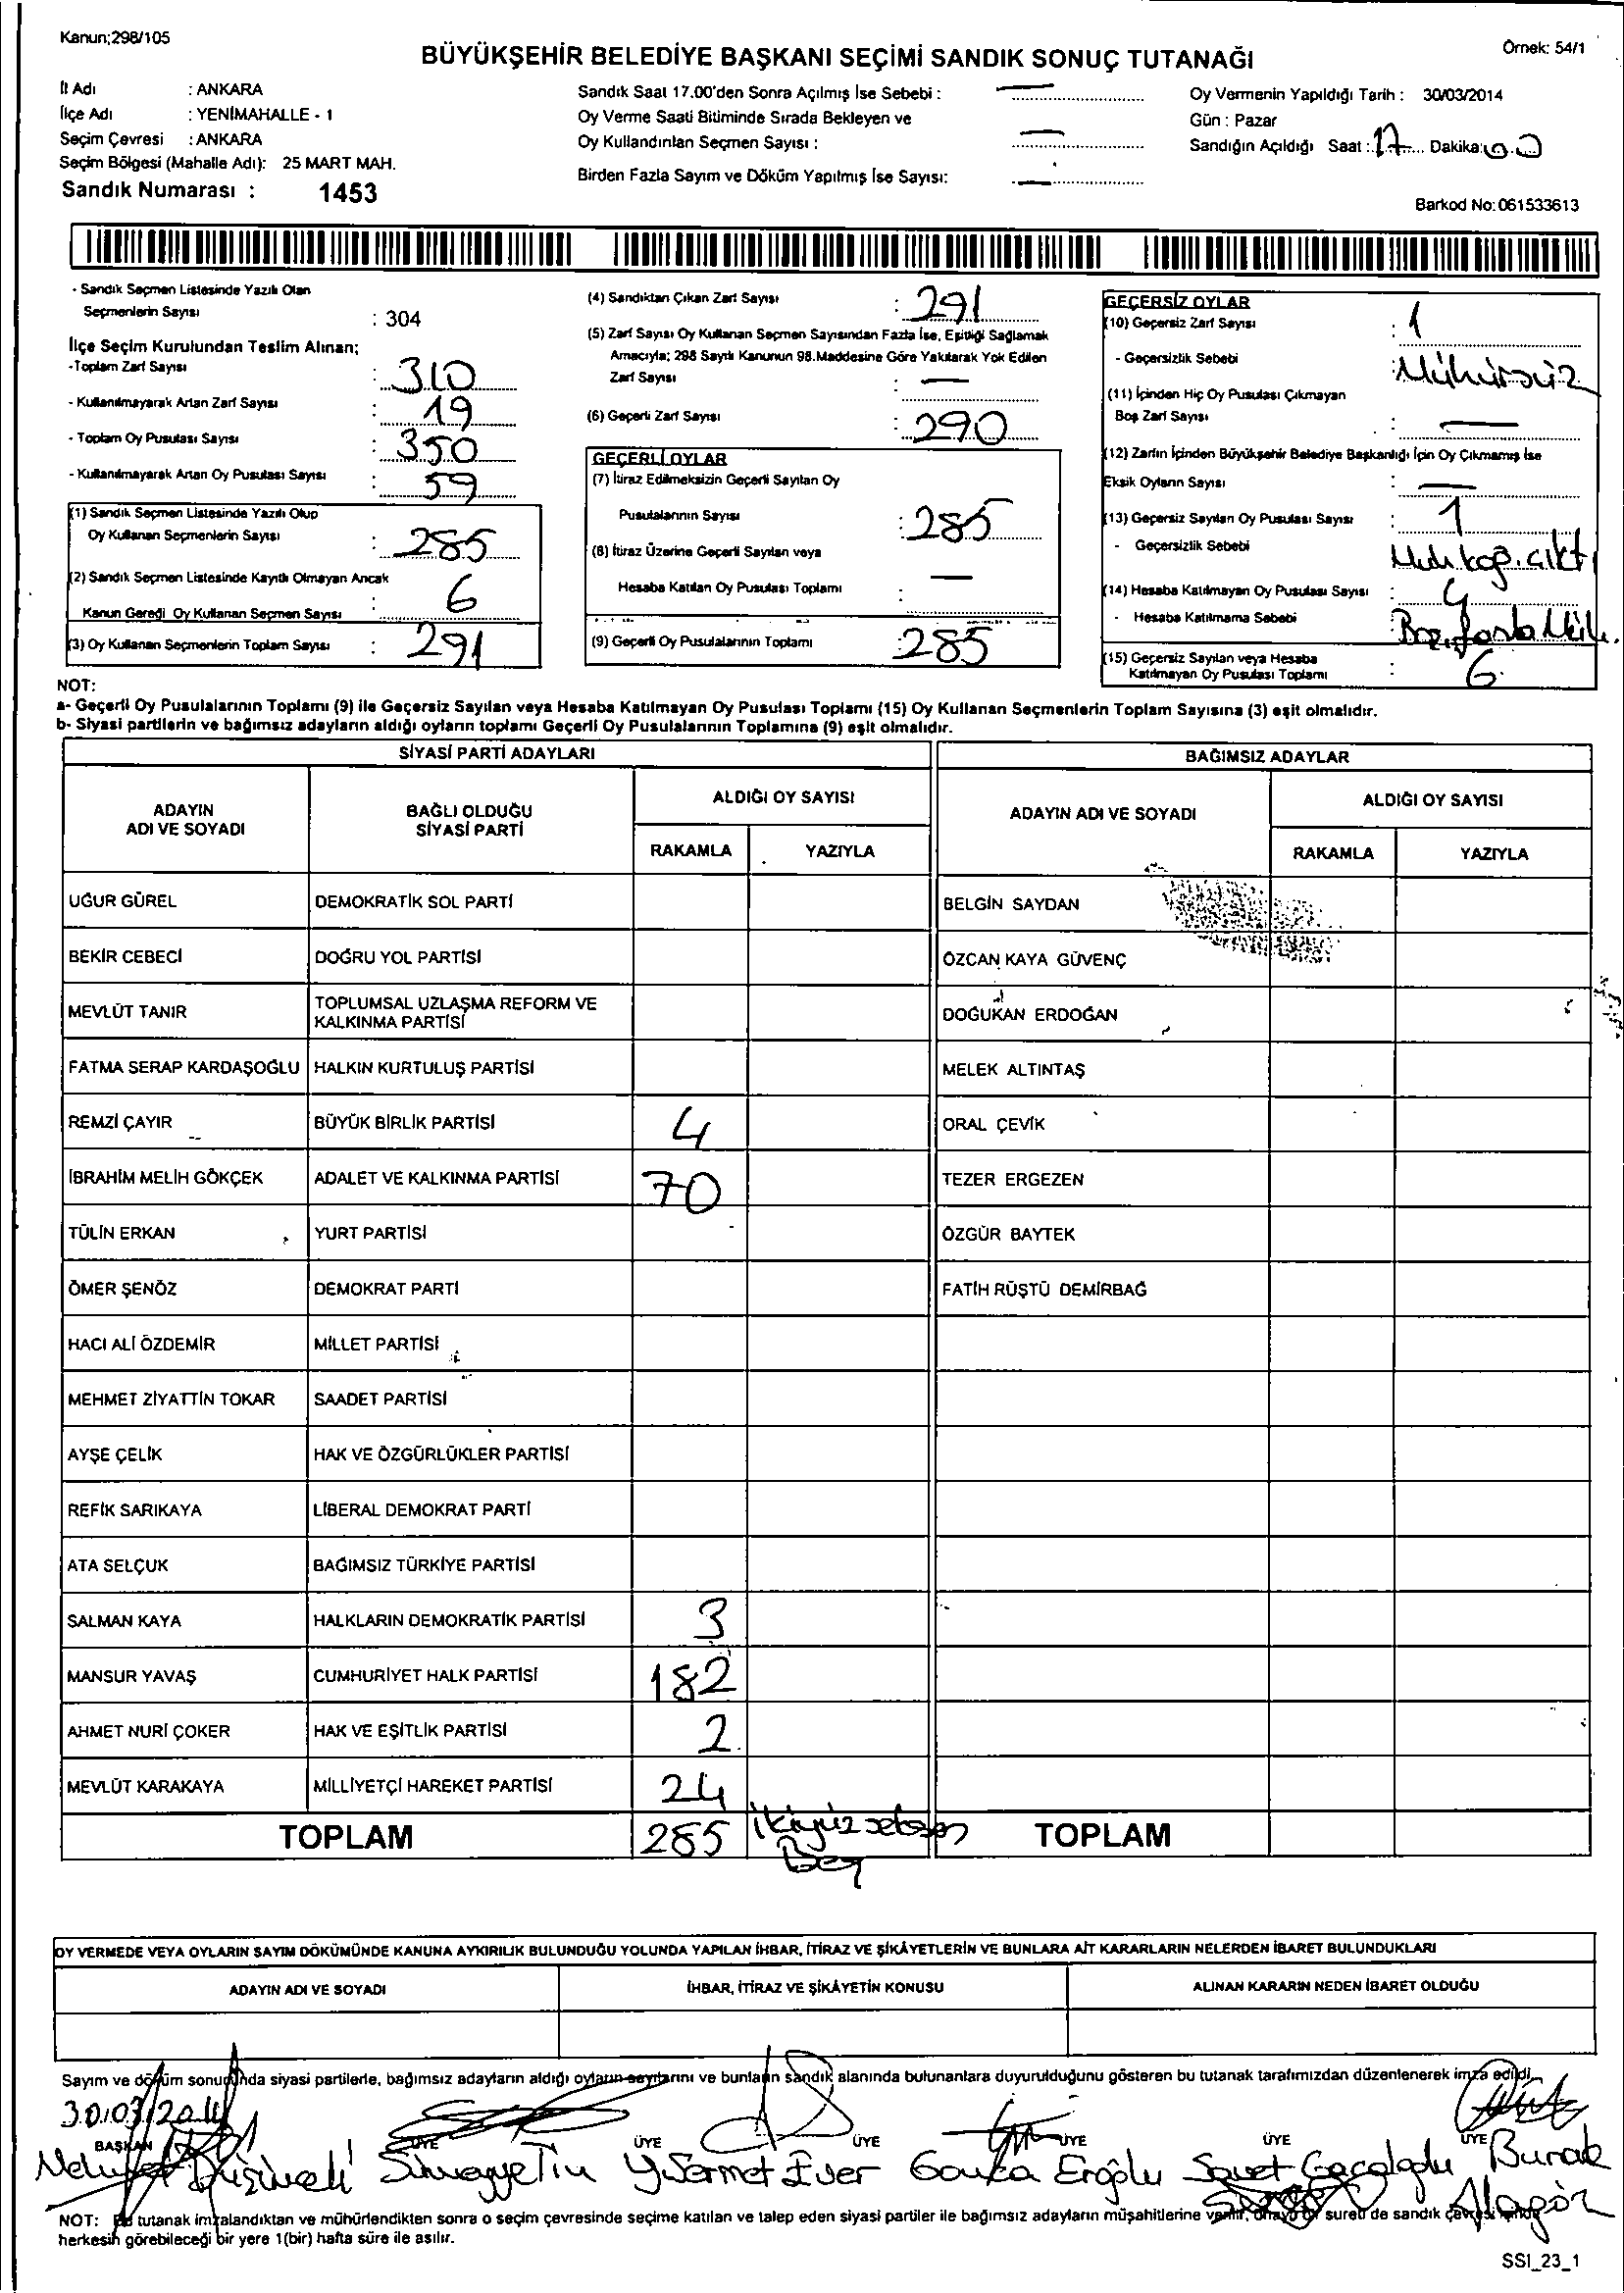 Kanun;298/105
Örnek: 54/1
BÜYÜKŞEHİR BELEDİYE BAŞKANI SEÇİMİ SANDIK SONUÇ TUTANAĞI
İl Adı : ANKARA
İlçe Adı : YENİMAHALLE - 1
Seçim Çevresi : ANKARA
Seçim Bölgesi (Mahalle Adı): 25 MART MAH.
Sandık Numarası : 1453
Sandık Saat 17.00'den Sonra Açılmış İse Sebebi : —
Oy Verme Saati Bitiminde Sırada Bekleyen ve
Oy Kullandırılan Seçmen Sayısı : —
Birden Fazla Sayım ve Döküm Yapılmış İse Sayısı: —
Oy Vermenin Yapıldığı Tarih : 30/03/2014
Gün : Pazar
Sandığın Açıldığı Saat : 17 Dakika: 00
Barkod No: 061533613
- Sandık Seçmen Listesinde Yazılı Olan
Seçmenlerin Sayısı : 304
İlçe Seçim Kurulundan Teslim Alınan;
-Toplam Zarf Sayısı : 310
- Kullanılmayarak Artan Zarf Sayısı : 19
- Toplam Oy Pusulası Sayısı : 350
- Kullanılmayarak Artan Oy Pusulası Sayısı : 59
(1) Sandık Seçmen Listesinde Yazılı Olup
Oy Kullanan Seçmenlerin Sayısı : 285
(2) Sandık Seçmen Listesinde Kayıtlı Olmayan Ancak
Kanun Gereği Oy Kullanan Seçmen Sayısı : 6
(3) Oy Kullanan Seçmenlerin Toplam Sayısı : 291
(4) Sandıktan Çıkan Zarf Sayısı : 291
(5) Zarf Sayısı Oy Kullanan Seçmen Sayısından Fazla İse, Eşitliği Sağlamak
Amacıyla; 298 Sayılı Kanunun 98.Maddesine Göre Yakılarak Yok Edilen
Zarf Sayısı : —
(6) Geçerli Zarf Sayısı : 290
GEÇERLİ OYLAR
(7) İtiraz Edilmeksizin Geçerli Sayılan Oy
Pusulalarının Sayısı : 285
(8) İtiraz Üzerine Geçerli Sayılan veya
Hesaba Katılan Oy Pusulası Toplamı : —
(9) Geçerli Oy Pusulalarının Toplamı : 285
GEÇERSİZ OYLAR
(10) Geçersiz Zarf Sayısı : 1
- Geçersizlik Sebebi Mühürsüz
(11) İçinden Hiç Oy Pusulası Çıkmayan
Boş Zarf Sayısı : —
(12) Zarfın İçinden Büyükşehir Belediye Başkanlığı İçin Oy Çıkmamış İse
Eksik Oyların Sayısı : —
(13) Geçersiz Sayılan Oy Pusulası Sayısı : 1
- Geçersizlik Sebebi çıktı
(14) Hesaba Katılmayan Oy Pusulası Sayısı : 4
- Hesaba Katılmama Sebebi
(15) Geçersiz Sayılan veya Hesaba
Katılmayan Oy Pusulası Toplamı : 6
NOT:
a- Geçerli Oy Pusulalarının Toplamı (9) ile Geçersiz Sayılan veya Hesaba Katılmayan Oy Pusulası Toplamı (15) Oy Kullanan Seçmenlerin Toplam Sayısına (3) eşit olmalıdır.
b- Siyasi partilerin ve bağımsız adayların aldığı oyların toplamı Geçerli Oy Pusulalarının Toplamına (9) eşit olmalıdır.
SİYASİ PARTİ ADAYLARI
BAĞIMSIZ ADAYLAR
ADAYIN ADI VE SOYADI
BAĞLI OLDUĞU SİYASİ PARTİ
ALDIĞI OY SAYISI
RAKAMLA YAZIYLA
ADAYIN ADI VE SOYADI
ALDIĞI OY SAYISI
RAKAMLA YAZIYLA
UĞUR GÜREL DEMOKRATİK SOL PARTİ BELGİN SAYDAN
BEKİR CEBECİ DOĞRU YOL PARTİSİ ÖZCAN KAYA GÜVENÇ
MEVLÜT TANIR TOPLUMSAL UZLAŞMA REFORM VE KALKINMA PARTİSİ DOĞUKAN ERDOĞAN
FATMA SERAP KARDAŞOĞLU HALKIN KURTULUŞ PARTİSİ MELEK ALTINTAŞ
REMZİ ÇAYIR BÜYÜK BİRLİK PARTİSİ 4 ORAL ÇEVİK
İBRAHİM MELİH GÖKÇEK ADALET VE KALKINMA PARTİSİ 70 TEZER ERGEZEN
TÜLİN ERKAN YURT PARTİSİ ÖZGÜR BAYTEK
ÖMER ŞENÖZ DEMOKRAT PARTİ FATİH RÜŞTÜ DEMİRBAĞ
HACI ALİ ÖZDEMİR MİLLET PARTİSİ
MEHMET ZİYATTİN TOKAR SAADET PARTİSİ
AYŞE ÇELİK HAK VE ÖZGÜRLÜKLER PARTİSİ
REFİK SARIKAYA LİBERAL DEMOKRAT PARTİ
ATA SELÇUK BAĞIMSIZ TÜRKİYE PARTİSİ
SALMAN KAYA HALKLARIN DEMOKRATİK PARTİSİ 3
MANSUR YAVAŞ CUMHURİYET HALK PARTİSİ 182
AHMET NURİ ÇOKER HAK VE EŞİTLİK PARTİSİ 2
MEVLÜT KARAKAYA MİLLİYETÇİ HAREKET PARTİSİ 24
TOPLAM 285 ikiyüz seksen Beş TOPLAM
OY VERMEDE VEYA OYLARIN SAYIM DÖKÜMÜNDE KANUNA AYKIRILIK BULUNDUĞU YOLUNDA YAPILAN İHBAR, İTİRAZ VE ŞİKÂYETLERİN VE BUNLARA AİT KARARLARIN NELERDEN İBARET BULUNDUKLARI
ADAYIN ADI VE SOYADI İHBAR, İTİRAZ VE ŞİKÂYETİN KONUSU ALINAN KARARIN NEDEN İBARET OLDUĞU
Sayım ve döküm sonucunda siyasi partilerle, bağımsız adayların aldığı oyların sayılarını ve bunların sandık alanında bulunanlara duyurulduğunu gösteren bu tutanak tarafımızdan düzenlenerek imza edildi.
30/03/2014
BAŞKAN ÜYE ÜYE ÜYE ÜYE ÜYE ÜYE
Gonca Eroğlu Burak
NOT: Bu tutanak imzalandıktan ve mühürlendikten sonra o seçim çevresinde seçime katılan ve talep eden siyasi partiler ile bağımsız adayların müşahitlerine verilir, onaylı bir sureti de sandık çevresi içinde
herkesin görebileceği bir yere 1(bir) hafta süre ile asılır.
SSI_23_1